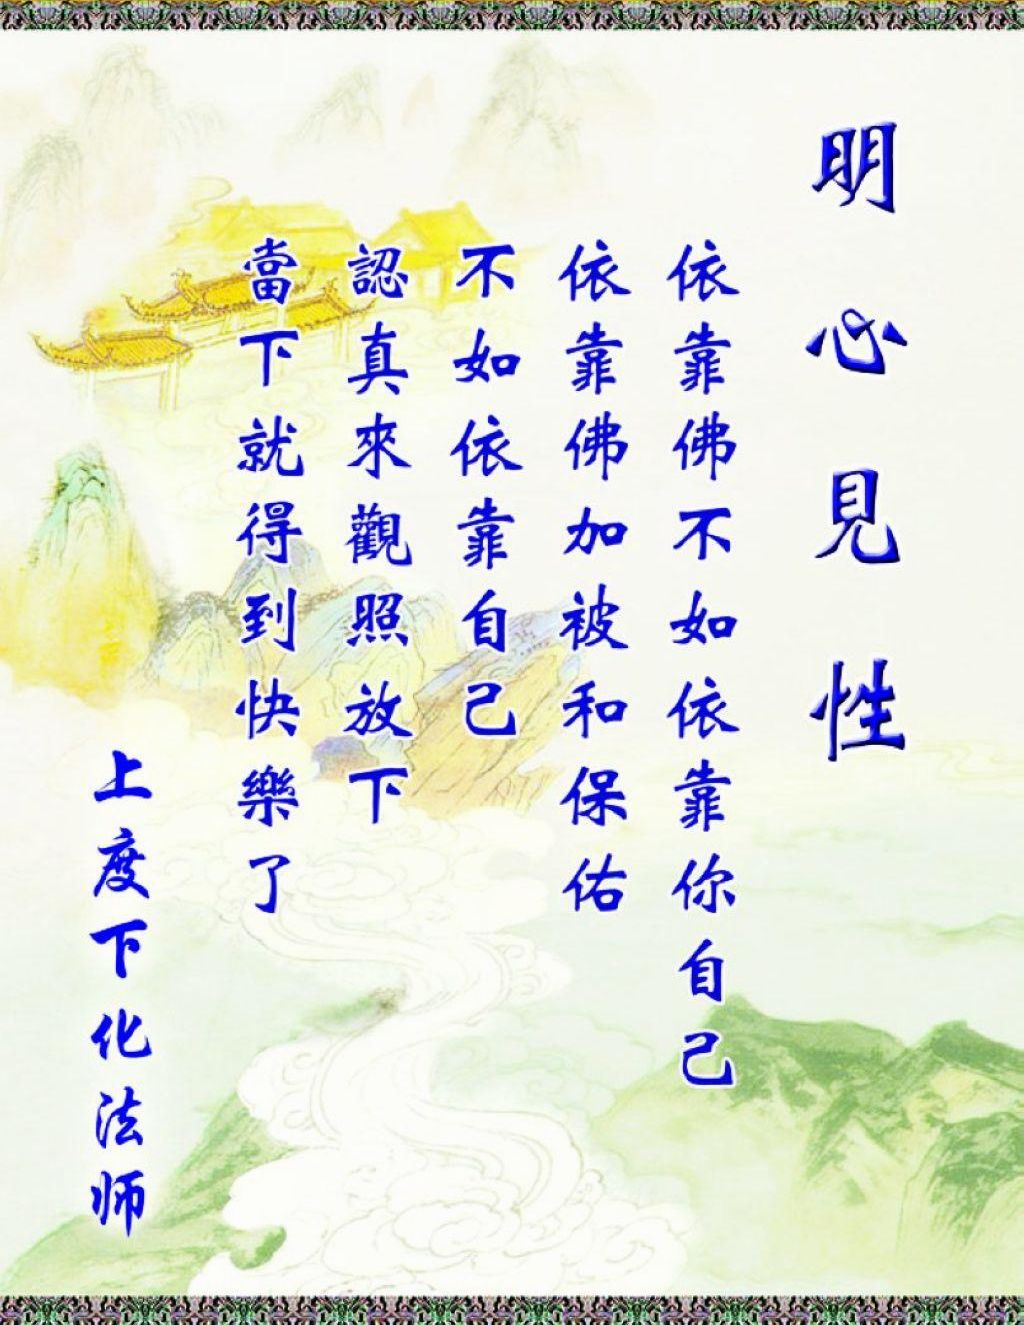 明心見性
依靠佛不如依靠你自己
依靠佛加被和保佑
不如依靠自己
認真來觀照放下
當下就得到快樂了
上度下化法师